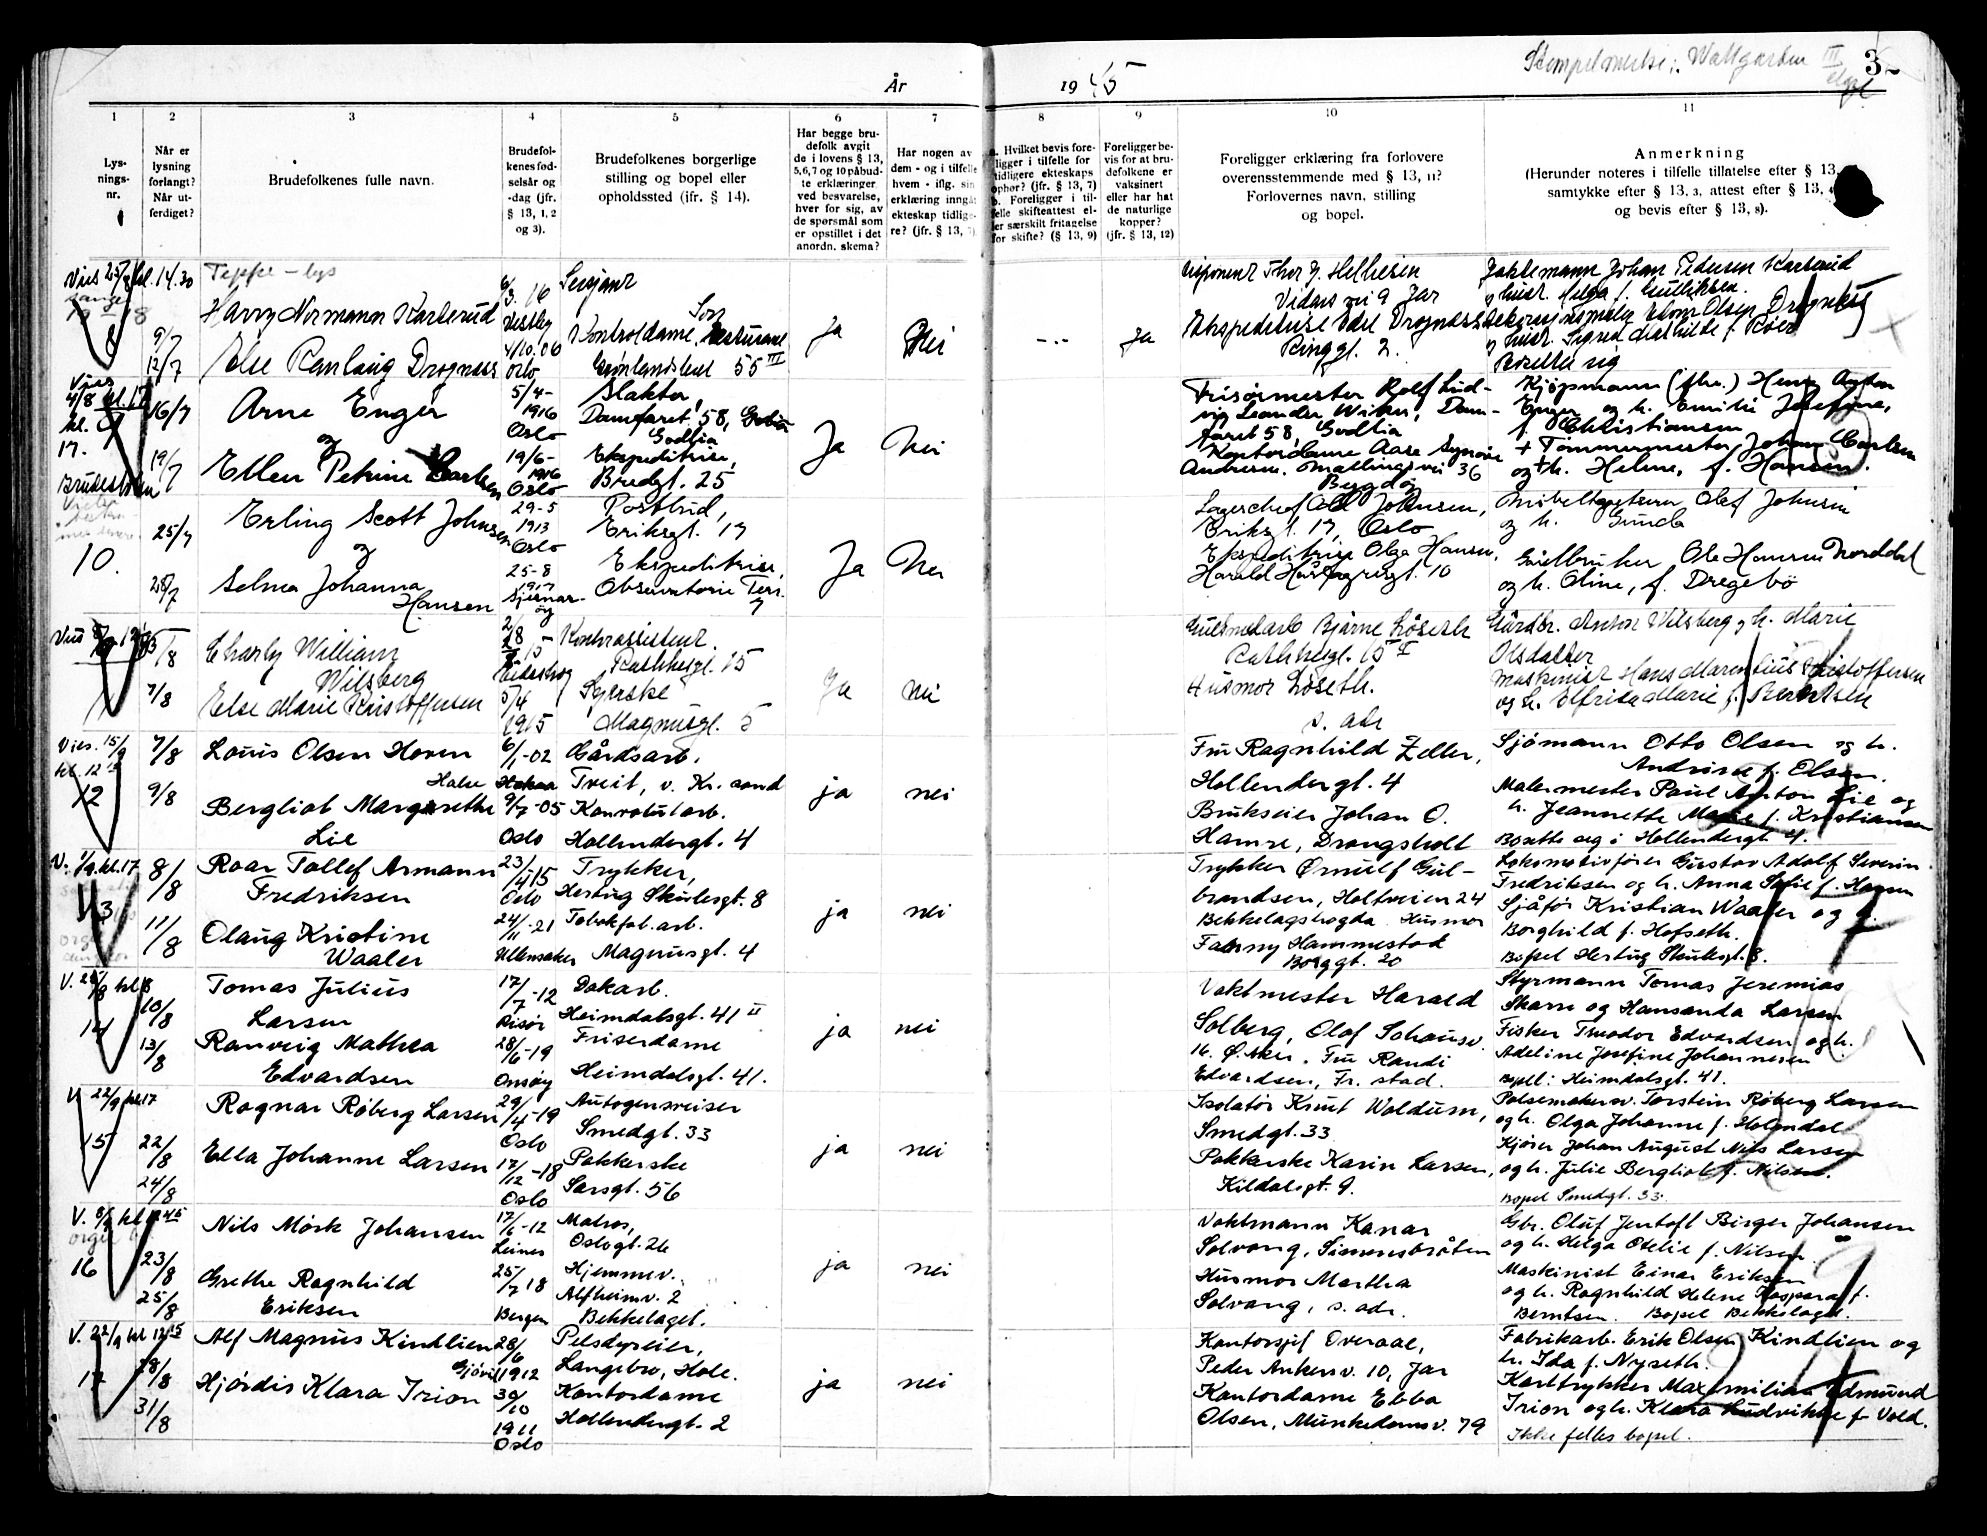 Stempelmerke: Wattgarden III
3
År
19 45
1
2
3
4
5
6
7
8
9
10
11
Lys-
nings-
nr.
Når er
lysning
forlangt?
Når ut-
ferdiget?
Brudefolkenes fulle navn.
Brudefol-
kenes fød-
selsår og
-dag (jfr.
§ 13, 1, 2
og 3).
Brudefolkenes borgerlige
stilling og bopel eller
opholdssted (jfr. § 14).
Har begge bru-
defolk avgit
de i lovens § 13,
5,6,7 og 10 påbud-
te erklæringer
ved besvarelse,
hver for sig, av
de spørsmål som
er opstillet i det
anordn. skema?
Har nogen av
dem - og i tilfelle
hvem - iflg. sin
erklæring inngåt
ekteskap tidlige-
re? (jfr. § 13,
a. Hvilket bevis fore-
ligger i tilfelle for
tidligere ekteskaps
ophør? (jfr. § 13, 7)
b. Foreligger i til-
felle skifteattest el-
er særskilt fritagelse
for skifte? (§ 13, 9)
Foreligger be-
vis for at bru-
defolkene er
vaksinert
eller har hat
de naturlige
kopper?
(jfr. § 13, 12)
Foreligger erklæring fra forlovere
overensstemmende med § 13, 11?
Forlovernes navn, stilling
og bopel.
Anmerkning
(Herunder noteres i tilfelle tillatelse efter § 13,
samtykke efter § 13, 3, attest efter § 13, 4,
og bevis efter § 13, 8).
Vies 25/8 kl. 14.30
Teppe - lys
8
9/7
12/7
Harry Normann Karterud
Else Ranlaug Drognæs
6/3. 16
Vestby
4/10. 06
Oslo
Sersjant
Son
Kontroldame, Restaurant
Grønlandsleiret 55 III
Ja
Nei
- . -
Ja
Disponent Thor J. Hellesen
Vidars vei 9 Jar
Ekspeditrise Edel Drognæs
Ringgt. 2.
Johan Pedersen Karterud
g hustr. Helga f. Gulliksen.
Olsen Drognæs
g hustr. Sigrid Mathilde f. Røer
Bosette sig
Vies
4/8 kl. 17
9
kl.
17.
Brudesløren
16/7
19/7
Arne Enger
og
Ellen Petrine Carlsen
5/4-
1916
Oslo
19/6-
1916
Oslo
Slakter,
Damfaret 58,
Godlia
Ekspeditrise,
Bredgt. 25
Ja
Nei
Frisørmester Rolf Lud-
vig Leander Wiker, Dam-
faret 58, Godlia
Kontordame Aase Synøve
Andresen, Mallingsvei 36
Bergdø
Kjøpmann (fhv.) Henry Anton
Enger og h. Emilie Josefine,
f. Christiansen
+ Tømmermester Johan Carlsen
og + h. Helene, f. Hansen.
10.
25/7
28/7
Erling Scott Johnsen
og
Selma Johanna
Hansen
29-5
1913
Oslo
25-8
1917
Sjernar-
øy
Postbud,
Eriksgt. 17
Ekspeditrise,
Observatorie Terr.
7
Ja
Nei
Lagerchef Odd Johnsen,
Eriksgt. 17, Oslo
Ekspeditrise Olga Hansen,
Harald Hårfagresgt. 10
Møbeltapetserer Olaf Johnsen
og h. Gunda
Gårdbruker Ole Hansen Norddal
og h. Oline, f. Dregebø
Vies
11
5/8
7/8
Charly William
Wilsberg
Else Marie Kristoffersen
2/8
15 -
Eidskog
5/4
1915
Kontorassistent.
Rathkesgt. 15
Syerske
Magnusgt. 5
Ja
nei
Gullsmedarb Bjarne Løseth
Rathkesgt. 15 I
Husmor Løseth.
s. adr
Gårdbr. Anton Wilsberg og h. Marie
Olsdatter
Maskinist Hans Marentius Kristoffersen
og h. Elfrida Marie f. Berntsen
Vies. 15/9
kl. 12
12
7/8
9/8
Louis Olsen Hoven
Bergliot Margarethe
Lie
6/1-02
Halse
9/7-05
Oslo
Gårdsarb.
Tveit, v. Kr. sand
Konvoluttarb.
Hollendergt. 4
ja
nei
Fru Ragnhild Zeller,
Hollendergt. 4
Brukseier Johan O.
Hamre, Drangsholt
Sjømann Otto Olsen og h.
Andrine f. Olsen.
Malermester Paul Anton Lie og
h. Jeannette Marie f. Kristiansen
Bosette seg i Hollendergt. 4.
V. 1/9 kl. 17
13
8/8
11/8
Roar Tollef Armann
Fredriksen
Olaug Kristine
Waaler
23/4 15
Oslo
24/11-21
Ullensaker
Trykker,
Hertug Skulesgt. 8
Tobakfab. arb.
Magnusgt. 4
ja
nei
Trykker Ørnulf Gul-
brandsen, Holtveien 24
Bekkelagshøgda Husmor
Fanny Hammestad
Borggt. 20
Lokomotivfører Gustav Adolf Severin
Fredriksen og h. Anna Sofie f. Hansen
Sjåfør Kristian Waaler og h.
Borghild f. Hofseth.
Bopel Hertug Skulesgt. 8.
V. 25/8 kl. 18
14
10/8
13/8
Tomas Julius
Larsen
Ranveig Mathea
Edvardsen
17/7-12
Risør
28/6-19
Onsøy
Dokarb.
Heimdalsgt. 41 II
Friserdame
Heimdalsgt. 41.
ja
nei
Vaktmester Harald
Solberg, Olaf Schousv.
16. Ø. Aker. Fru Randi
Edvardsen, Fr. stad.
Styrmann Tomas Jeremias
Skarre og Hansanda Larsen
Fisker Teodor Edvardsen og h.
Adeline Josefine Johannesen
Bopel: Heimdalsgt. 41.
V. 22/9 kl. 17
15
22/8
24/8
Ragnar Røberg Larsen
Ella Johanne Larsen
29/4-19
Oslo
17/12-18
Oslo
Autogensveiser
Smedgt. 33
Pakkerske
Sarsgt. 56
ja
nei
Isolatør Knut Woldum,
Smedgt. 33
Pakkerske Karin Larsen,
Kildalsgt. 9.
Pølsemakersv. Torstein Røberg Larsen
og h. Olga Johanne f. Holmdal
Kjører Johan August Nils Larsen
og h. Julie Bergliot f. Nilsen.
Bopel Smedgt. 33.
V. 8/9 kl. 12 45
16
23/8
25/8
Nils Mørk Johansen
Grethe Ragnhild
Eriksen
17/6-12
25/7 18
Bergen
Matros,
Oslogt. 26
Hjemmev.
Alfheimv. 2
Bekkelaget.
ja
nei
Vaktmann Kanar
Solvang, Simensbråten
Husmor Martha
Solvang, s. adr.
Gbr. Oluf Jentoft Birger Johansen
og h. Helga Otelie f. Nilsen
Maskinist Einar Eriksen
og h. Ragnhild Helene Kaspara f.
Berntsen. Bopel Bekkelaget.
V. 22/9 kl 12 15
17
28/8
31/8
Alf Magnus Kindlien
Hjørdis Klara Irion
28/6
1912
Gjøvik
30/10
1911
Oslo
Pelsdyreier,
Langebro, Hole.
Kontordame
Hollendergt. 2
ja
nei
Kontorsjef Overaae,
Peder Ankersv. 10, Jar
Kontordame Ebba
Olsen, Munkedamsv. 79
Fabrikarb. Erik Olsen Kindlien og
h. Ida f. Nyseth.
Karttrykker Maximilian Edmund
Irion og h. Klara Ludvikke f. Vold.
Ikke felles bopel.